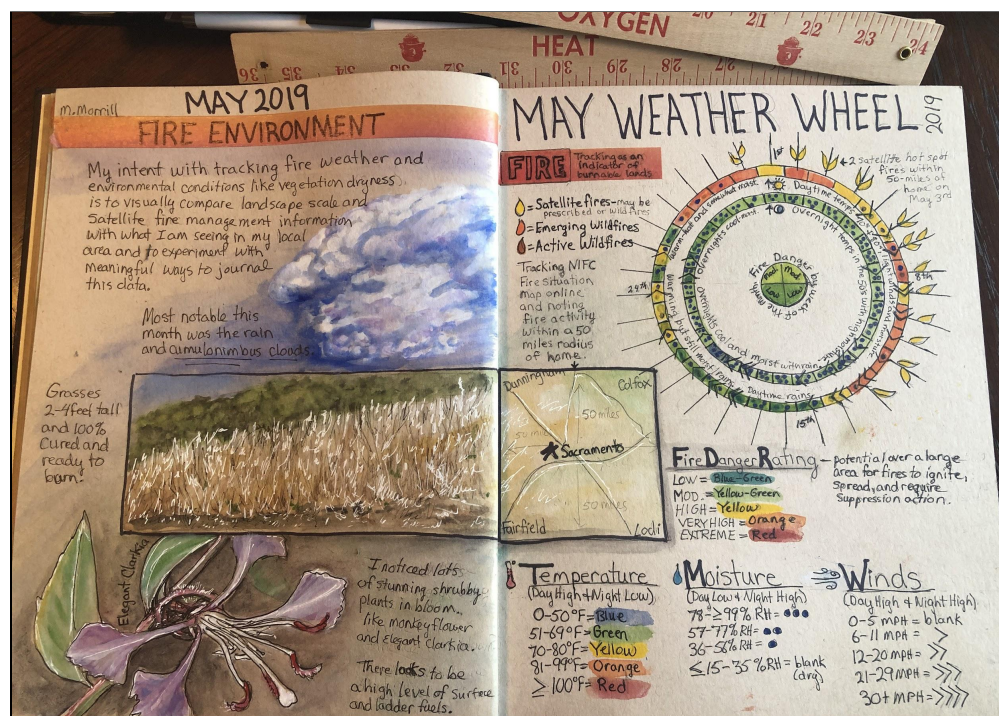 OXYGEN
20 21 22 23 24
HEAT
36 35 34 33 32 31 30 29 28 27
M. Morrill
MAY 2019
FIRE ENVIRONMENT
My intent with tracking fire weather and
environmental conditions like vegetation dryness
is to visually compare landscape scale and
Satellite fire management information
with what I am seeing in my local
area and to experiment with
meaningful ways to journal
this data.
Most notable this
month was the rain
and cumulonimbus clouds.
Grasses
2-4 feet tall
and 100%
Cured and
ready to
burn!
Elegant Clarkia
I noticed lots
of stunning shrubby
plants in bloom..
like monkeyflower
and Elegant Clarkia.
There looks to be
a high level of surface
and ladder fuels.
MAY WEATHER WHEEL
2019
FIRE
Tracking as an
indicator of
burnable lands
= Satellite fires-may be
prescribed or wild fires
= Emerging Wildfires
= Active Wildfires
Tracking NIFC
Fire situation
map online
and noting
fire activity
within a 50
miles radius
of home.
2 satellite hot spot
fires within
50-miles of
home on
May 3rd
1st
8th
15th
29th
Daytime temps
Overnight temps in the 50s with high
Overnights cool and moist with rain
Daytime rains
overnights cool moist
warm and somewhat moist
but still moist
Fire Danger by week of the Month
Mod
Mod
Low
Low
Dunningham
Colfax
50 miles
50 miles
Sacramento
50 miles
Fairfield
Lodi
Fire Danger Rating - potential over a large
area for fires to ignite,
spread, and require
suppression action.
LOW = Blue-Green
MOD. = Yellow-Green
HIGH = Yellow
VERY HIGH = Orange
EXTREME = Red
Temperature
(Day High & Night Low)
0-50°F = Blue
51-69°F = Green
70-80°F = Yellow
81-99°F = Orange
≥ 100°F = Red
Moisture
(Day Low & Night High)
78-≥99% RH =
57-77% RH =
36-56% RH =
≤15-35% RH = blank
(dry)
Winds
(Day High & Night High)
0-5 mpH = blank
6-11 mpH = >
12-20 mpH = >>
21-29 mpH = >>>
30+ mpH = >>>>